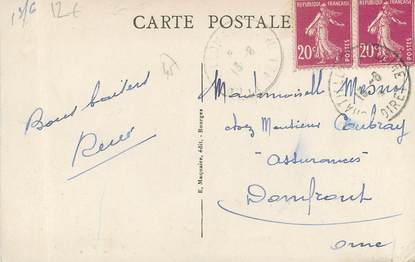 15/6 12€
CARTE POSTALE
REPUBLIQUE FRANÇAISE
20c POSTES
REPUBLIQUE FRANÇAISE
20c POSTES
13-8
Bons baisers
René
E. Maquaire, édit. - Bourges
Mademoiselle Mesnot
chez Monsieur Coubray
Assurances
Domfront
Orne